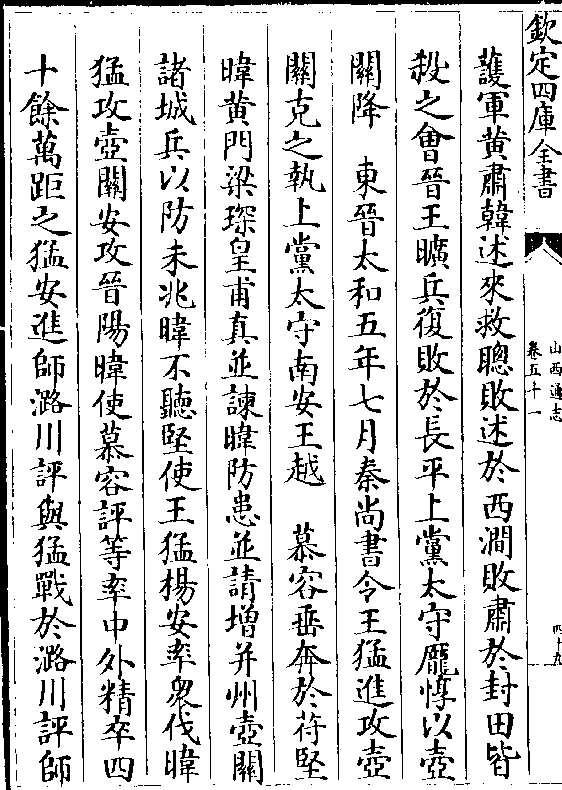 欽定四庫全書
山西通志
卷五十一
四十九
䕶軍黄肅韓述來救聰敗述於西澗敗肅於封田皆
殺之會晉王曠兵復敗於長平上黨太守龎惇以壺
關降　東晉太和五年七月秦尚書令王猛進攻壺
關克之執上黨太守南安王越　慕容垂奔於苻堅
暐黄門梁琛皇甫真並諫暐防患並請增并州壺關
諸城兵以防未兆暐不聽堅使王猛楊安率衆伐暐
猛攻壺關安攻晉陽暐使慕容評等率中外精卒四
十餘萬距之猛安進師潞川評與猛戰於潞川評師